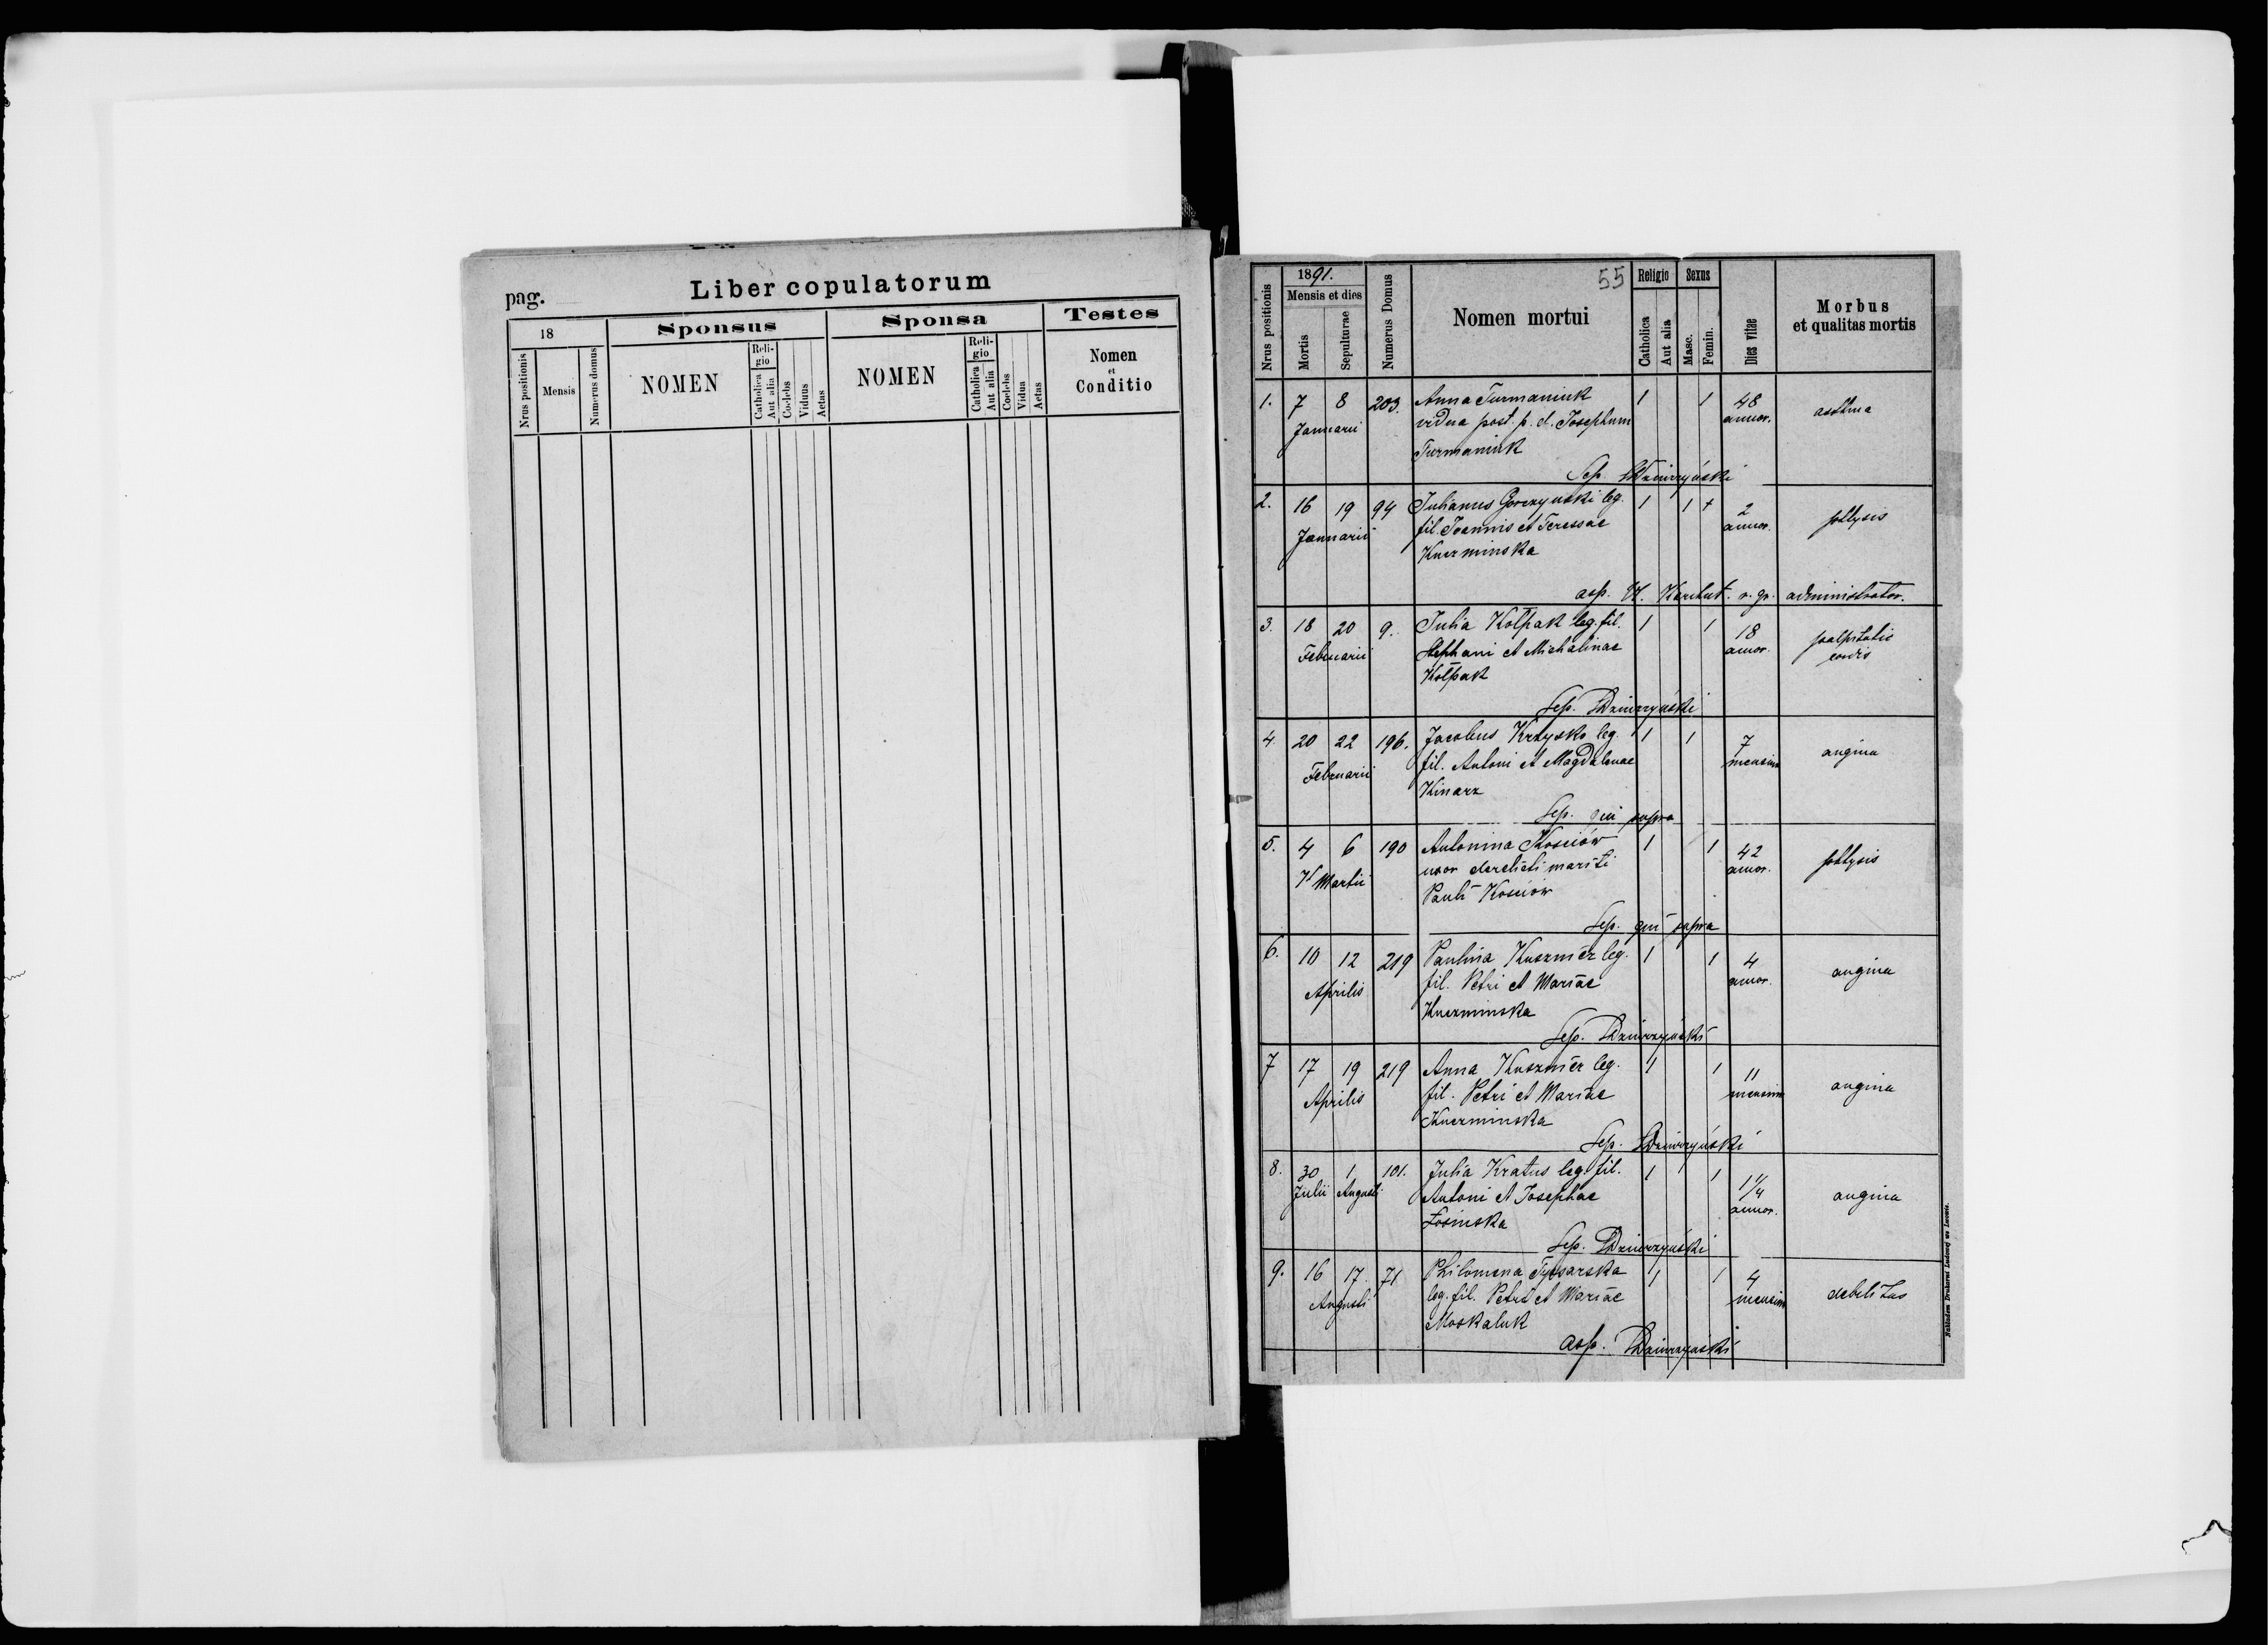 pag.
Liber copulatorum
18
Sponsus
Sponsa
Testes
Nrus positionis
Mensis
Numerus domus
NOMEN
Religio
Catholica
Aut alia
Coelebs
Viduus
Aetas
NOMEN
Religio
Catholica
Aut alia
Coelebs
Vidua
Aetas
Nomen
et
Conditio
55
Nrus positionis
1891.
Mensis et dies
Mortis
Sepulturae
Numerus Domus
Nomen mortui
Religio
Catholica
Aut alia
Sexus
Masc.
Femin.
Dies vitae
Morbus
et qualitas mortis
1. 7 8 203. Anna Turmaniuk 1 1 48 asthma
Januarii vidua post. p. d. Josephum annor.
Turmaniuk
Sep. Dziurzyński
2. 16 19 94 Julianus Gorczynski leg. 1 1 + 2 phtysis
Januarii fil. Joannis et Teressae annor.
Kuczminska
asp. r. gr. administrator.
3. 18 20 9. Julia Kołpak leg. fil. 1 1 18 palpitatis
Februarii Stephani et Michalinae annor. cordis
Kołpak
Sep. Dziurzyński
4. 20 22 196. Jacobus Krzysko leg. 1 1 7 angina
Februarii fil. Antoni et Magdalenae mensium
Kinarz
Sep. qui supra
5. 4 6 190 Antonina Kosciów 1 1 42 phtysis
Martii uxor derelicti mariti annor.
Pauli Kosciów
Sep. qui supra
6. 10 12 219 Paulina Kuszmier leg. 1 1 4 angina
Aprilis fil. Petri et Mariae annor.
Kuczminska
Sep. Dziurzyński
7 17 19 219 Anna Kuszmier leg. 1 1 11 angina
Aprilis fil. Petri et Mariae mensium
Kuczminska
Sep. Dziurzyński
8. 30 1 101. Julia Kratus leg. fil. 1 1 1 1/4 angina
Julii Augusti Antoni et Josephae annor.
Łosinska
Sep. Dziurzyński
9. 16 17. 71 Philomena 1 1 4 debilitas
Augusti leg. fil. Petri et Mariae mensium
Moskaluk
asp. Dziurzyński
Nakładem Drukarni Ludowej we Lwowie.